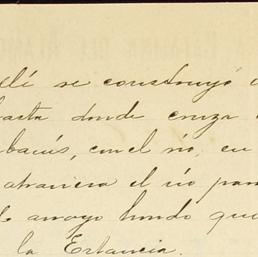 se construyó
hasta donde cruza
con el río, en
atraviesa el río para
arroyo hondo que
la Estancia.